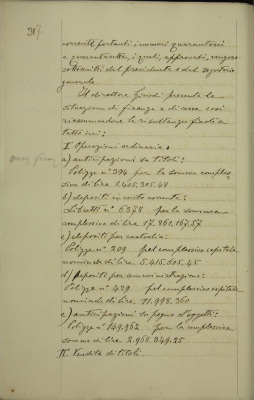 317.
corrente portanti i numeri quarantasei
e quarantasette, i quali, approvati, vengono
sottoscritti dal presidente e dal segretario
generale.
Il direttore presenta la
situazione di finanza e di cassa così
riassumendone le risultanze finali a
tutto ieri:
I. Operazioni ordinarie:
a) anticipazioni su titoli:
Polizze n° 394 per la somma comples-
siva di lire 1.405.305.48
b) depositi in conto corrente:
Libretti n° 6378 per la somma
complessiva di lire 17.861.167.57
c) depositi per custodia:
Polizze n° 209 pel complessivo capitale
nominale di lire 5.415.605.45
d) depositi per amministrazione:
Polizze n° 429 pel complessivo capitale
nominale di lire 11.998.360
e) anticipazioni su pegno d'oggetti:
Polizze n° 149.962 per la complessiva
somma di lire 2.968.349.25
II. Vendita di titoli.